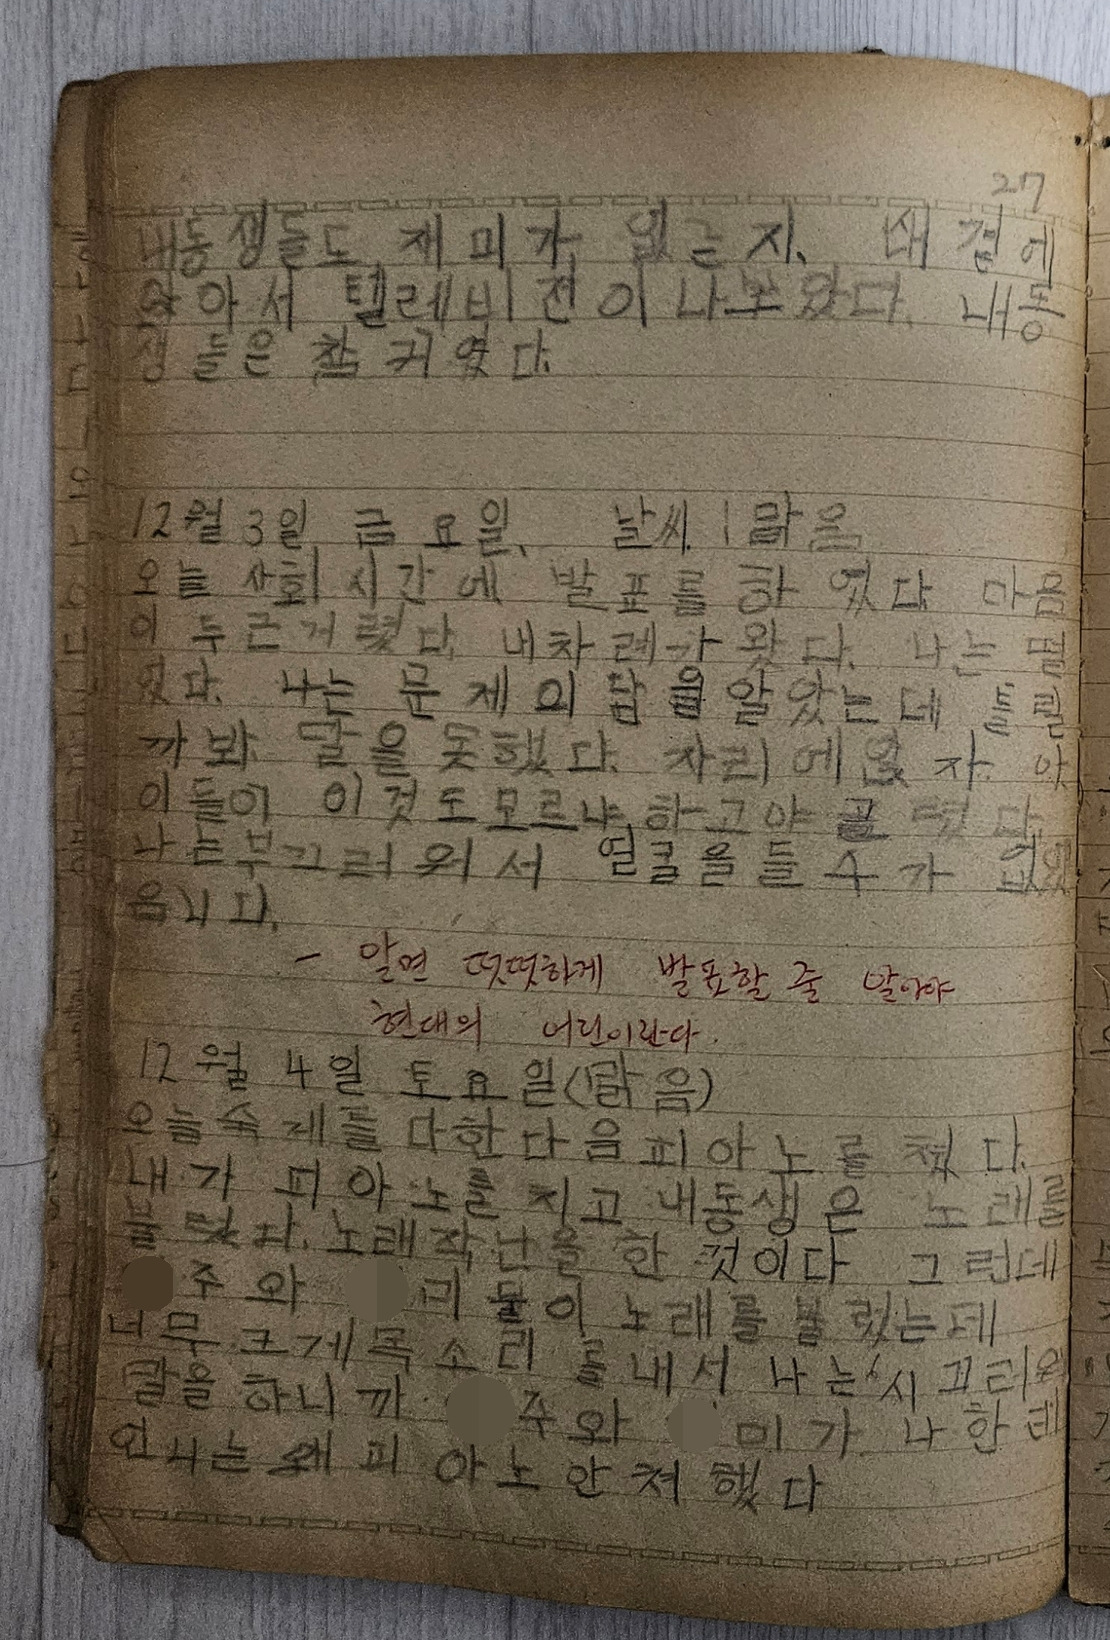 27
내동생들도 재미가 있는지, 내 곁에
와 아서 텔레비전이 나 보았다. 내동
생들은 참 귀였다.
12월 3일 금요일, 날씨. 맑음
오늘 사회시간에 발표를 하였다 마음
이 두근거렸다. 내차례가 왔다. 나는 떨
었다. 나는 문제의 답을 알았는데 틀릴
까봐 말을 못했다. 자리에 앉자 아
이들이 이것도모르냐 하고야 골렸다
나는부끄러워서 얼굴을 들 수 가 없었
읍니다.
- 알면 떳떳하게 발표할 줄 알아야
현대의 어린이란다.
12월 4일 토요일(맑음)
오늘숙제를 다한다음피아노를 쳤다.
내가 피아노를 치고 내동생은 노래를
불렀다. 노래작난을 한 것이다 그런데
주와 리 둘이 노래를 불렀는데
너무 크게목소리를내서 나는 시끄러워
말을 하니까 주와 미가 나한테
언니는 왜 피아노안쳐 했다